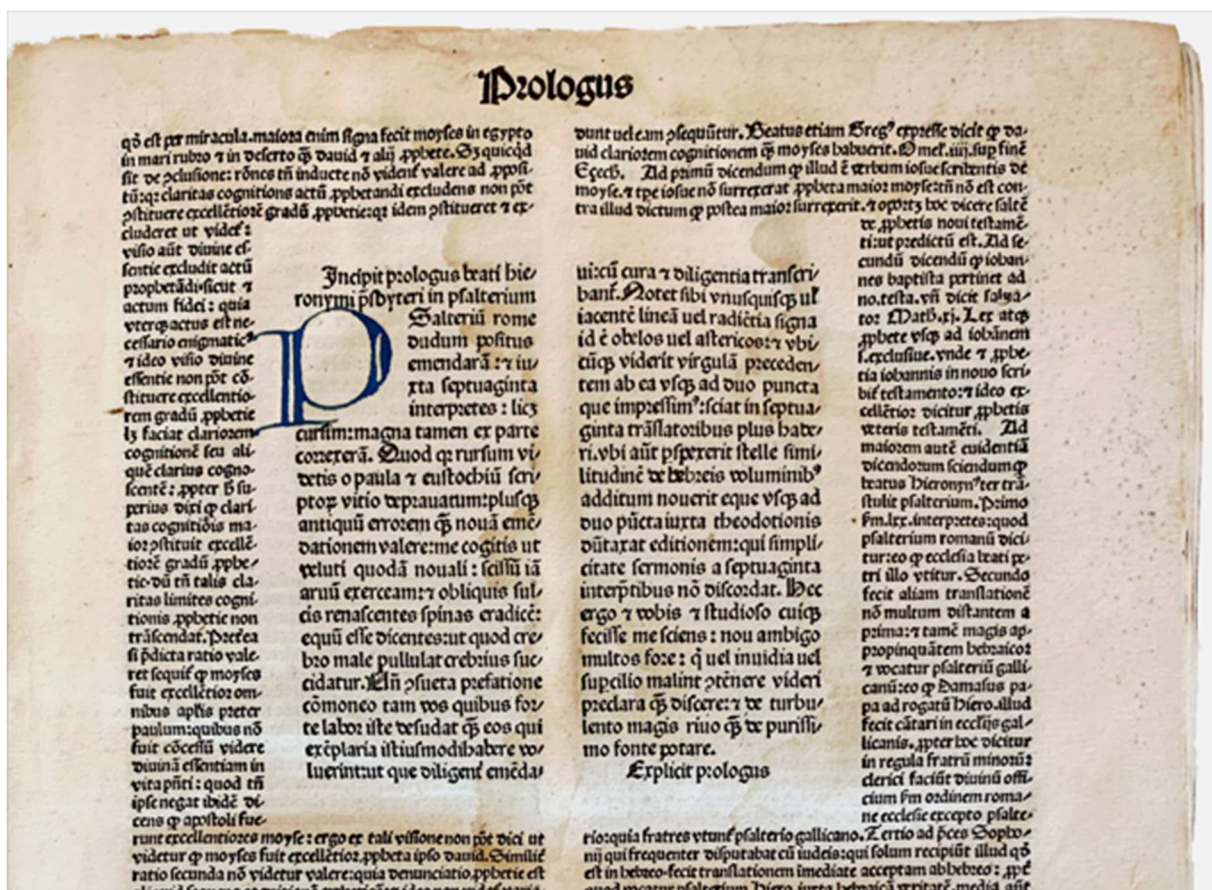 Prologus
qđ est per miracula.maiora enim signa fecit moyses in egypto
in mari rubro ⁊ in deserto q̄ȝ dauid ⁊ alij ꝓphete. Sȝ quicq̄d
sit de ↄclusione: rōnes tn̄ inducte nō vident̄ valere ad ꝓposi-
tū:qꝛ claritas cognitions actū ꝓphetandi excludens non pōt
ↄstituere excellētiorē gradū ꝓphetie:qꝛ idem ↄstitueret ⁊ ex-
cluderet ut videt̄:
visio aūt diuine es-
sentie excludit actū
prophetādi:sicut ⁊
actum fidei: quia
vterqȝ actus est ne-
cessario enigmaticꝰ
⁊ ideo visio diuine
essentie non pōt cō-
stituere excellentio-
rem gradū ꝓphetie
lȝ faciat clariorem
cognitionē seu ali-
quē clarius cogno-
scentē: ꝓpter ḣ su-
perius dixi ꝙ clari-
tas cognitiōis ma-
ior ↄstituit excellē-
tiorē gradū ꝓphe-
tie·dū tn̄ talis cla-
ritas limites cogni-
tionis ꝓphetie non
trāscendat.Preterea
si p̄dicta ratio vale-
ret sequit̄ ꝙ moyses
fuit excellētior om-
nibus aplīs preter
paulum:quibus nō
fuit cōcessū videre
diuinā essentiam in
vita pn̄ti: quod tn̄
ipse negat ibidē di-
cens ꝙ apostoli fue-
runt excellentiores moyse: ergo ex tali visione non pōt dici ut
videtur ꝙ moyses fuit excellētioꝛ.ꝓpheta ipso dauid. Similit̄
ratio secunda nō videtur valere:quia denunciatio.ꝓphetie est
Incipit prologus beati hie-
ronymi p̄sbyteri in psalterium
PSalteriū rome
dudum positus
emendarā: ⁊ iu-
xta septuaginta
interpretes : licȝ
cursim:magna tamen ex parte
correxerā. Quod qꝛ rursum vi-
detis o paula ⁊ eustochiū scri-
ptoꝝ vitio deprauatum:plusqȝ
antiquū errorem q̄ȝ nouā emē-
dationem valere:me cogitis ut
veluti quodā nouali : scissū iā
aruū exerceam:⁊ obliquis sul-
cis renascentes spinas eradicē:
equū esse dicentes:ut quod cre-
bro male pullulat crebrius suc-
cidatur. Un̄ ↄsueta prefatione
cōmoneo tam vos quibus for-
te labor iste desudat q̄ȝ eos qui
exēplaria istiusmodi habere vo-
luerint:ut que diligent̄ emēda-
ui:cū cura ⁊ diligentia transcri-
banť. Notet sibi vnusquisqȝ uł
iacentē lineā uel radiētia signa
id ē obelos uel astericos: ⁊ vbi-
cūqȝ viderit virgulā preceden-
tem ab ea vsqȝ ad duo puncta
que impressimꝰ:sciat in septua-
ginta trāslatoribus plus habe-
ri.vbi aūt pspexerit stelle simi-
litudinē de hebreis voluminibꝰ
additum nouerit eque vsqȝ ad
duo pūcta iuxta theodotionis
dūtaxat editionem:qui simpli-
citate sermonis a septuaginta
interp̄tibus nō discordat. Hec
ergo ⁊ vobis ⁊ studioso cuiqȝ
fecisse me sciens : nou ambigo
multos fore : q̇ uel inuidia uel
supcilio malint ↄtēnere videri
preclara q̄ȝ discere: ⁊ de turbu-
lento magis riuo q̄ȝ de purissi-
mo fonte potare.
Explicit prologus
dunt uel eam ↄsequūtur. Beatus etiam Gregꝰ expresse dicit ꝙ da-
uid clariorem cognitionem q̄ȝ moyses habuerit. Omel.iiij.sup finē
Ezech. Ad primū dicendum ꝙ illud ē verbum iosue scribentis de
moyse.⁊ tpe iosue nō surrexerat ꝓpheta maior moyse:tn̄ nō est con-
tra illud dictum ꝙ postea maior surrexerit.⁊ oportȝ hoc dicere saltē
de ꝓphetis noui testamē-
ti:ut predictū est. Ad se-
cundū dicendū ꝙ iohan-
nes baptista pertinet ad
no.testa. vn̄ dicit salua-
tor Math.xj. Lex atqȝ
ꝓphete vsqȝ ad iohānem
s.exclusiue.vnde ⁊ ꝓphe-
tia iohannis in nouo scri-
bit̄ testamento:⁊ ideo ex-
cellētior dicitur ꝓphetis
veteris testamēti. Ad
maiorem autē euidentiā
dicendorum sciendum ꝙ
beatus Hieronymꝰ ter trā-
stulit psalterium. Primo
ẜm.lxx.interpretes:quod
psalterium romanū dici-
tur:eo ꝙ ecclesia beati pe-
tri illo vtitur. Secundo
fecit aliam translationē
nō multum distantem a
prima:⁊ tamē magis ap-
propinquātem hebraico:
⁊ vocatur psalteriū galli-
canū:eo ꝙ Damasus pa-
pa ad rogatū Hiero.illud
fecit cātari in ecclesijs gal-
licanis.ꝓpter hoc dicitur
in regula fratrū minorū:
clerici faciūt diuinū offi-
cium ẜm ordinem roma-
ne ecclesie excepto psalte-
rio:quia fratres vtunt̄ psalterio gallicano. Tertio ad p̄ces Sopho-
nij qui frequenter disputabat cū iudeis:qui solum recipiūt illud qđ
est in hebreo·fecit translationem īmediate acceptam ab hebreo : ꝓpť